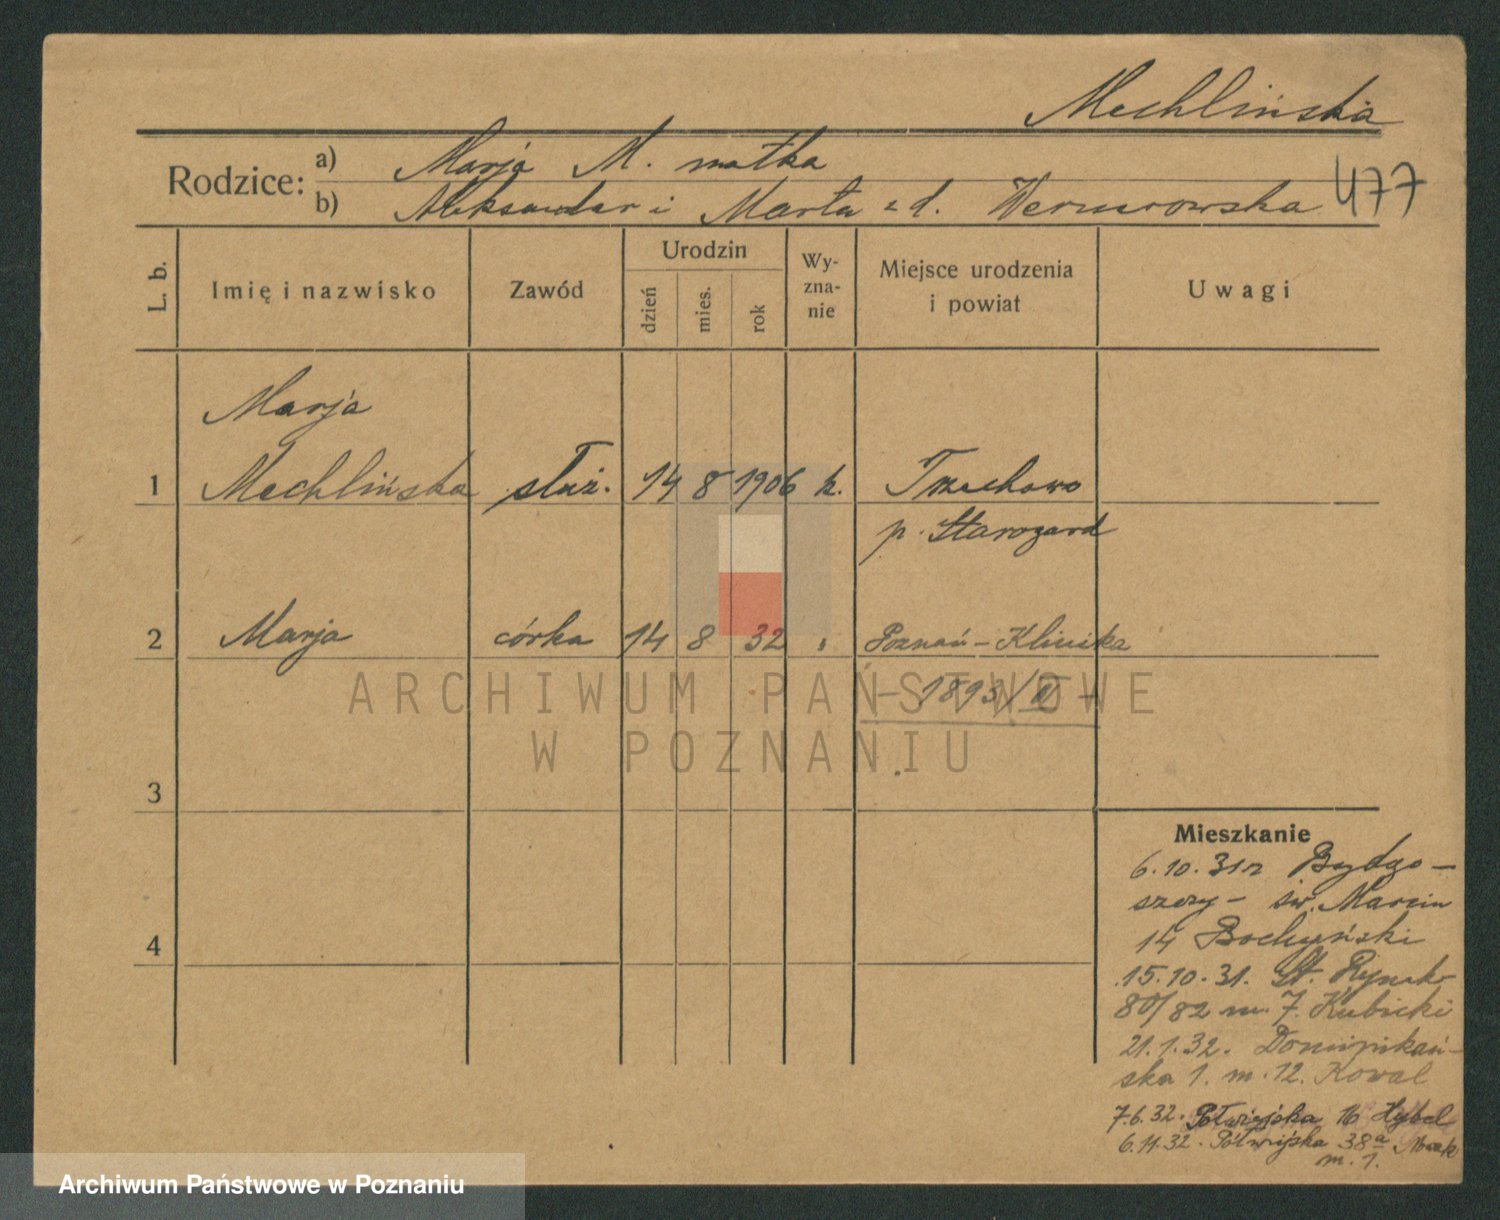 Mechlińska
Rodzice:
a) Marja M. matka
b) Aleksander i Marta z d. Wernerowska
477
L. b.
Imię i nazwisko
Zawód
Urodzin
dzień
mies.
rok
Wy-
zna-
nie
Miejsce urodzenia
i powiat
Uwagi
Marja
1 Mechlińska służ. 14 8 1906 k. Trzechowo
p. Starogard
2 Marja córka 14 8 32 " Poznań - Klinika
- 1893/II -
ARCHIWUM PAŃSTWOWE
W POZNANIU
3
4
Mieszkanie
6.10.31 r Bydgo-
szczy - św. Marcin
14 Bochyński
15.10.31. St. Rynek
80/82 m. 7. Kubicki
21.1.32. Dominikań-
ska 1. m. 12. Kowal
7.6.32. Półwiejska 16 Hybel
6.11.32. Półwiejska 38a Nowak
m. 1.
Archiwum Państwowe w Poznaniu